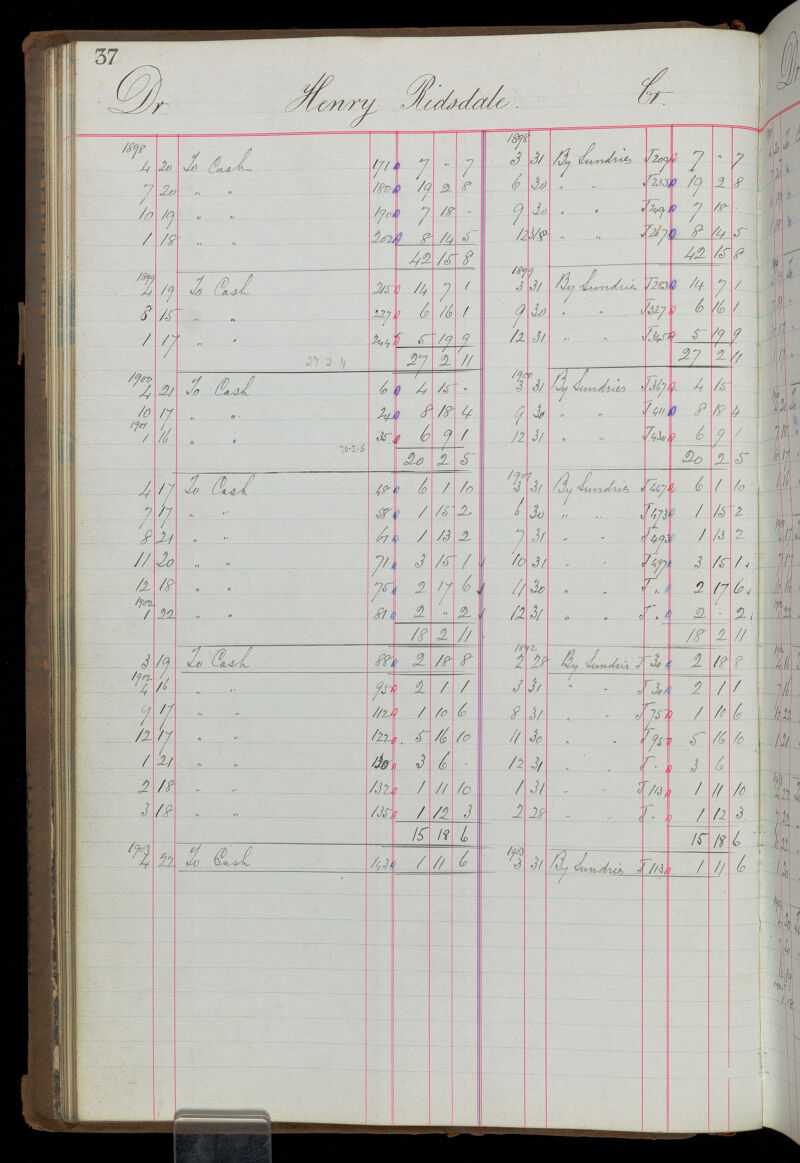 37
Dr Henry Ridsdale. Cr.
1898 1898
4 20 To Cash 171 7 " 7 3 31 By Sundries J209 7 " 7
7 20 " " 180 19 2 8 6 30 " " J233 19 2 8
10 19 " " 190 7 18 " 9 30 " " J249 7 18 "
1 18 " " 202 8 14 5 12 31/98 " " J267 8 14 5
42 15 8 42 15 8
1899 1899
4 19 To Cash 215 14 7 1 3 31 By Sundries J283 14 7 1
8 15 " " 227 6 16 1 9 30 " " J327 6 16 1
1 17 " " 244 5 19 9 12 31 " " J345 5 19 9
27 2 11 27 2 11 27 2 11
1900 1900
4 21 To Cash 6 4 15 " 3 31 By Sundries J367 4 15
10 17 " " 24 8 18 4 9 30 " " J411 8 18 4
1901
1 16 " " 35 6 9 1 12 31 " " J430 6 9 1
20-2-5 20 2 5 20 2 5
1901
4 17 To Cash 48 6 1 10 3 31 By Sundries J467 6 1 10
7 17 " " 58 1 15 2 6 30 " " J473 1 15 2
8 21 " " 61 1 13 2 7 31 " " J493 1 13 2
11 20 " " 71 3 15 1 10 31 " " J497 3 15 1
12 18 " " 75 2 17 6 11 30 " " J " 2 17 6
1902
1 22 " " 81 2 " 2 12 31 " " J " 2 " 2
18 2 11 18 2 11
1892
3 19 To Cash 88 2 18 8 2 28 By Sundries J 30 2 18 8
1902
4 16 " " 95 2 1 1 3 31 " " J 30 2 1 1
9 17 " " 112 1 10 6 8 31 " " J75 1 10 6
12 17 " " 122 5 16 10 11 30 " " J95 5 16 10
1 21 " " 130 3 6 " 12 31 " " J " 3 6
2 18 " " 132 1 11 10 1 31 " " J113 1 11 10
3 18 " " 135 1 12 3 2 28 " " J " 1 12 3
15 18 6 15 18 6
1903 1903
4 22 To Cash 143 1 11 6 3 31 By Sundries J113 1 11 6